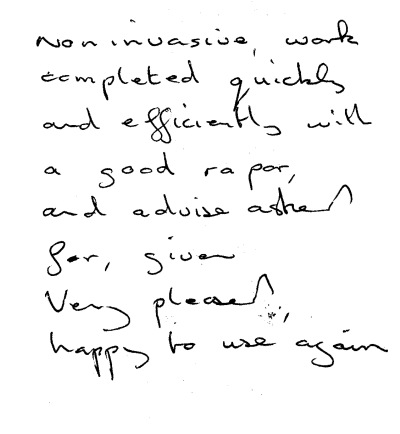 Non invasive, work
completed quickly
and efficiently with
a good rapor,
and advise asked
for, given
Very pleased,
happy to use again